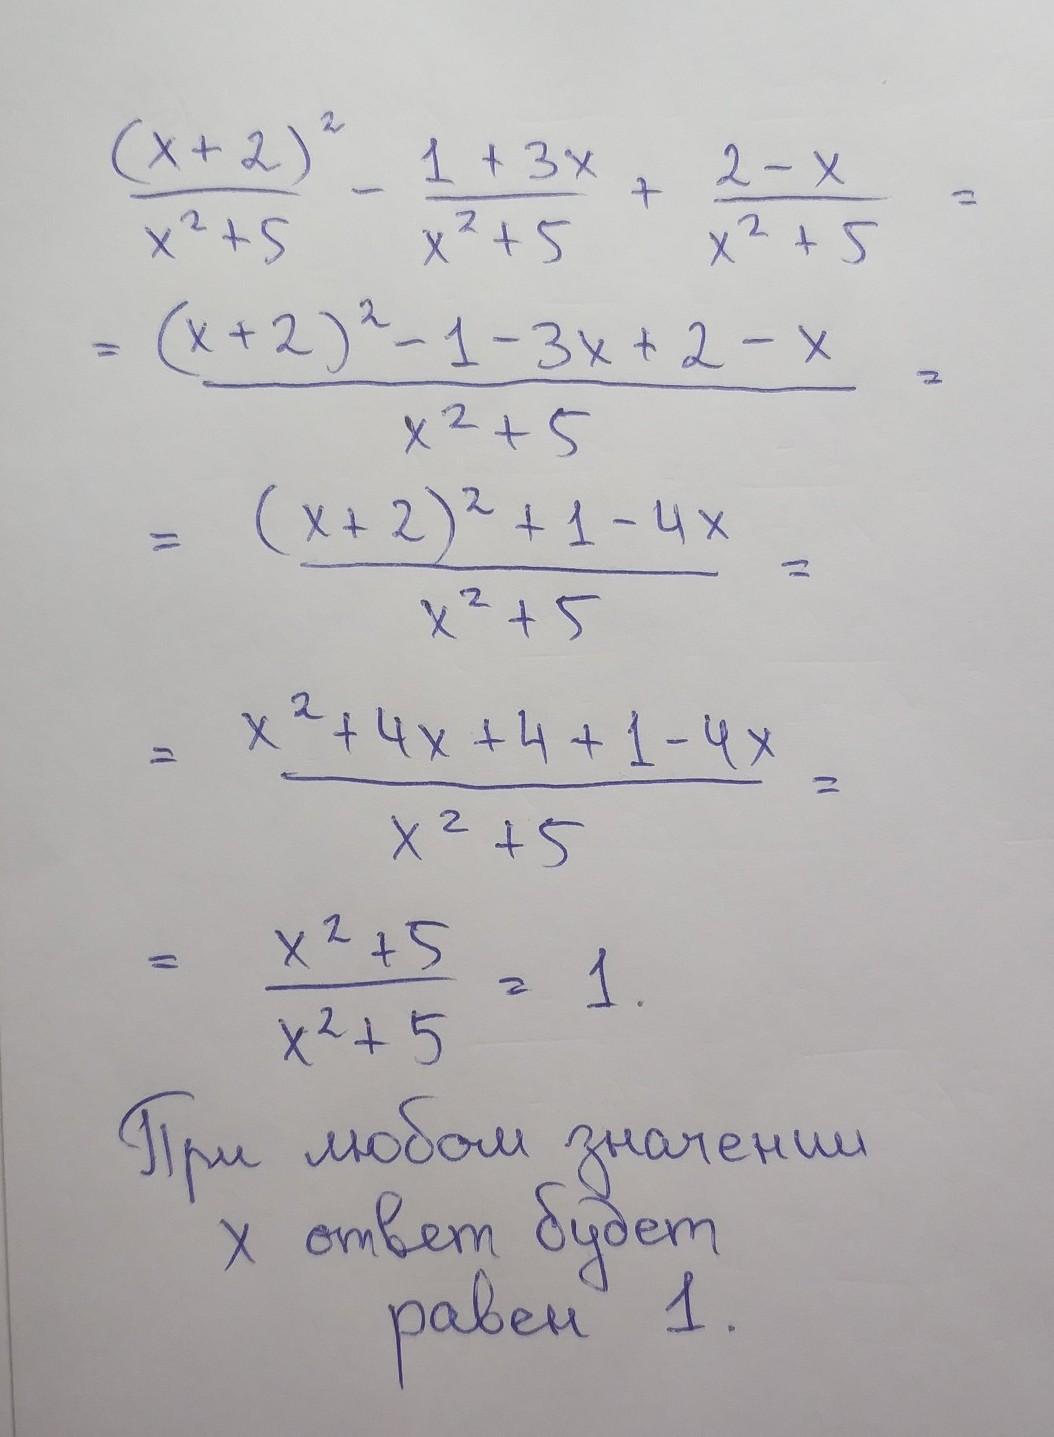 (x+2)² / x²+5 - 1+3x / x²+5 + 2-x / x²+5 =
= (x+2)² - 1 - 3x + 2 - x / x²+5 =
= (x+2)² + 1 - 4x / x²+5 =
= x² + 4x + 4 + 1 - 4x / x²+5 =
= x²+5 / x²+5 = 1.
При любом значении
x ответ будет
равен 1.